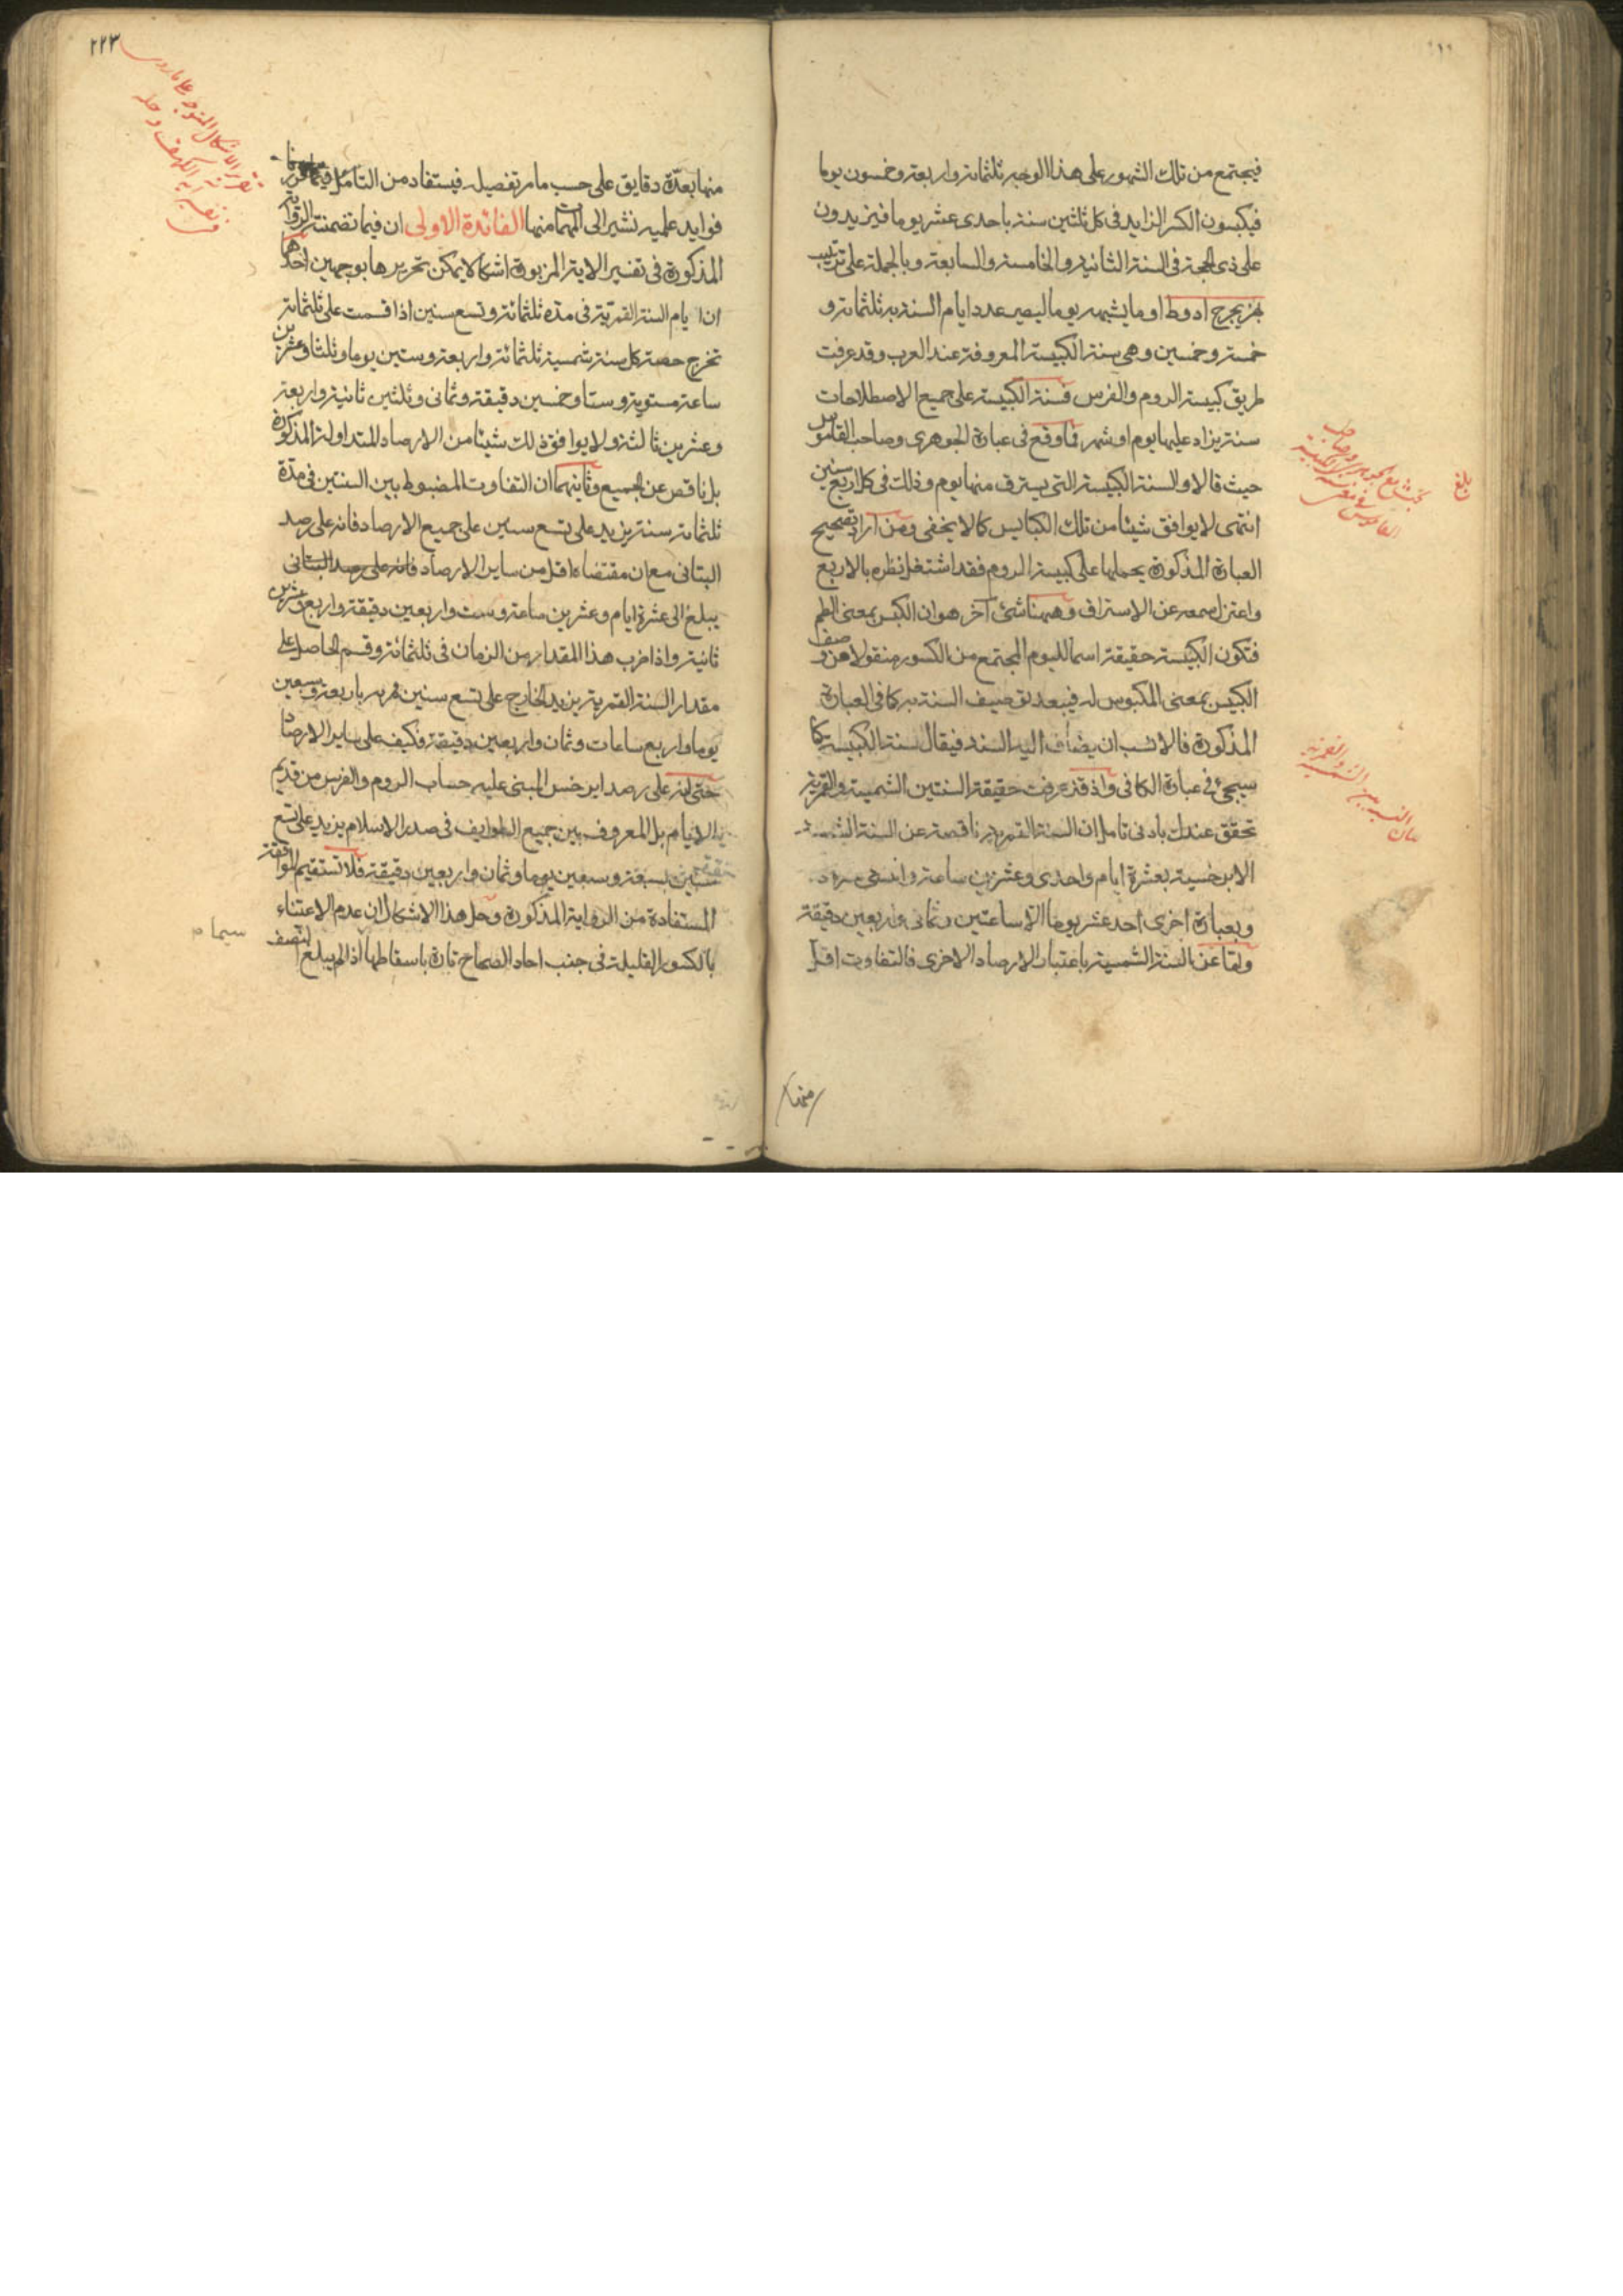 فيجتمع من تلك الشهور على هذا الوجه ثلثمائة واربعة وخمسون يوما
فيكبسون الكسر الزايد فى كل ثلثين سنة باحدى عشر يوما فيزيدون
على ذى الحجة فى السنة الثانية والخامسة والسابعة وبالجملة على ترتيب
بهزيجوح ادوط او ما يشبهه يوما ليصير عدد ايام السنة به ثلثمائة و
خمسة وخمسين وهى سنة الكبيسة المعروفة عند العرب وقد عرفت
طريق كبيسة الروم والفرس فسنة الكبيسة على جميع الاصطلاحات
سنة يزاد عليها يوم او شهر فما وقع فى عبارة الجوهرى وصاحب القاموس
حيث قالا والسنة الكبيسة التى يسترق منها يوم وذلك فى كل اربع سنين
انتهى لا يوافق شيئا من تلك الكبايس كما لا يخفى ومن اراد تصحيح
العبارة المذكورة بحملها على كبيسة الروم فقد اشتغل نظره بالاربع
واعتزل سمعه عن الاستراق وههنا شئ آخر هو ان الكبس بمعنى الطم
فتكون الكبيسة حقيقة اسما لليوم المجتمع من الكسور منقولا عن وصف
الكبيس بمعنى المكبوس له فيبعد توصيف السنة به كما فى العبارة
المذكورة فالانسب ان يضاف اليه السنة فيقال سنة الكبيسة كما
سيجئ فى عبارة الكافى واذ قد عرفت حقيقة السنتين الشمسية والقمرية
تحقق عندك بادنى تامل ان السنة القمرية ناقصة عن السنة الشمسية
الابرخسية بعشرة ايام واحدى وعشرين ساعة
وبعبارة اخرى احد عشر يوما الا ساعتين وثمانى واربعين دقيقة
واما عن السنة الشمسية باعتبار الارصاد الاخرى فالتفاوت اقل
بلغ
منها
٢٢٣
منها بعدة دقايق على حسب ما مر تفصيله فيستفاد من التامل فيما قررنا
فوايد علمية نشير الى المهمات منها الفائدة الاولى ان فيما تضمنته الرواية
المذكورة فى تفسير الاية المزبورة اشكالا يمكن تحريرها بوجهين احدهما
ان ايام السنة القمرية فى مدة ثلثمائة وتسع سنين اذا قسمت على ثلثمائة
تخرج حصة كل سنة شمسية ثلثمائة واربعة وستين يوما وثلثا وعشرين
ساعة مستوية وستا وخمسين دقيقة وثمانى وثلثين ثانية واربعة
وعشرين ثالثة ولا يوافق ذلك شيئا من الارصاد المتداولة المذكورة
بل ناقص عن الجميع وثانيهما ان التفاوت المضبوط بين السنتين فى مدة
ثلثمائة سنة يزيد على تسع سنين على جميع الارصاد فانه على رصد
البتانى مع ان مقتضاه اقل من ساير الارصاد فانه على رصد البتانى
يبلغ الى عشرة ايام وعشرين ساعة وست واربعين دقيقة واربع وعشرين
ثانية واذا ضرب هذا المقدار من الزمان فى ثلثمائة وقسم الحاصل على
مقدار السنة القمرية يزيد الخارج على تسع سنين قمرية باربعة وسبعين
يوما واربع ساعات وثمان واربعين دقيقة فكيف على ساير الارصاد
حتى انه على رصد ابرخس المبنى عليه حساب الروم والفرس من قديم
الايام بل المعروف بين جميع الطوايف فى صدر الاسلام يزيد على تسع
سنين بسبعة وسبعين يوما وثمان واربعين دقيقة فلا تستقيم الموافقة
المستفادة من الرواية المذكورة وحل هذا الاشكال ان عدم الاعتناء
بالكسور القليلة فى جنب احاد الصحاح تارة باسقاطها اذا لم يبلغ النصف
سيما